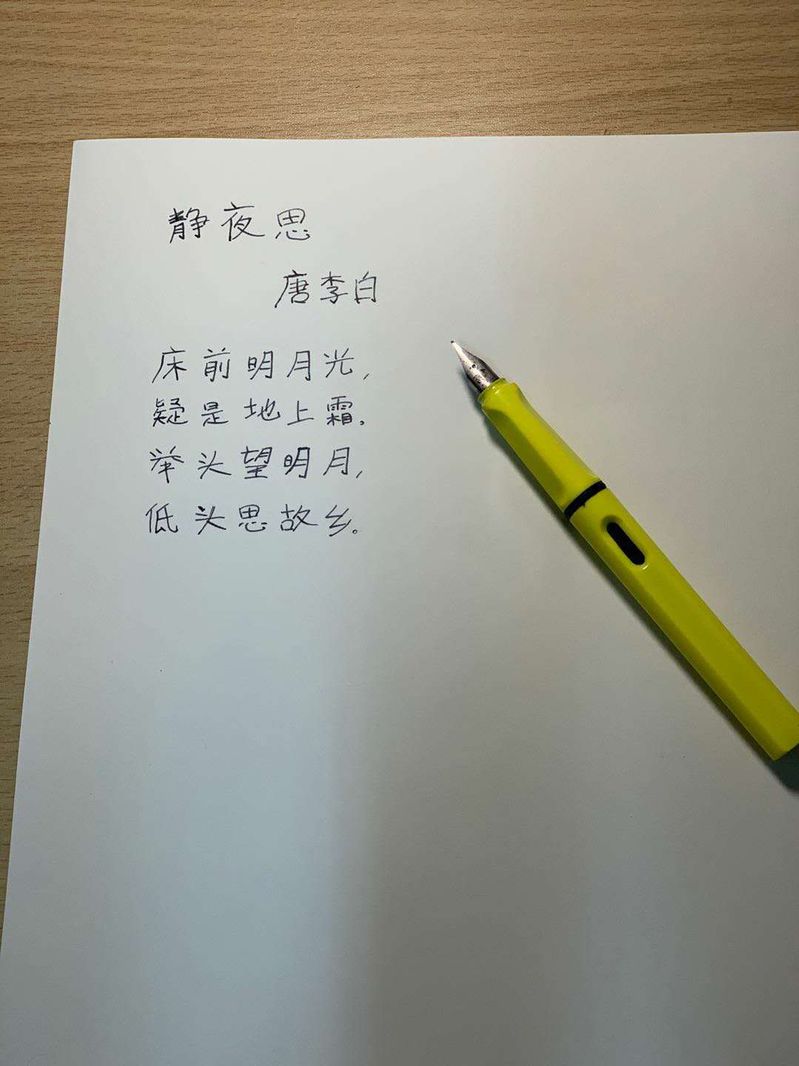 静夜思
唐李白
床前明月光,
疑是地上霜。
举头望明月,
低头思故乡。